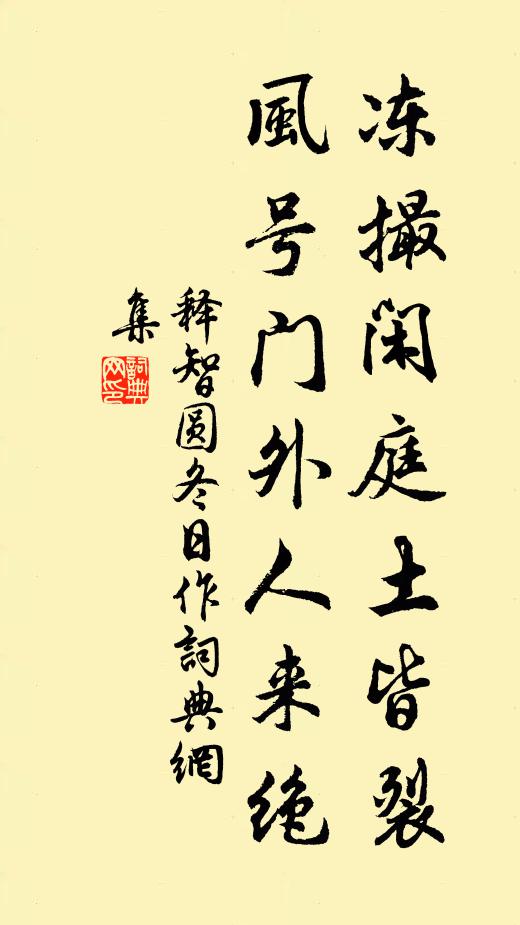 冻撮闲庭土皆裂
風号门外人来绝
释智圆冬日作詞典網
集
詞典网印